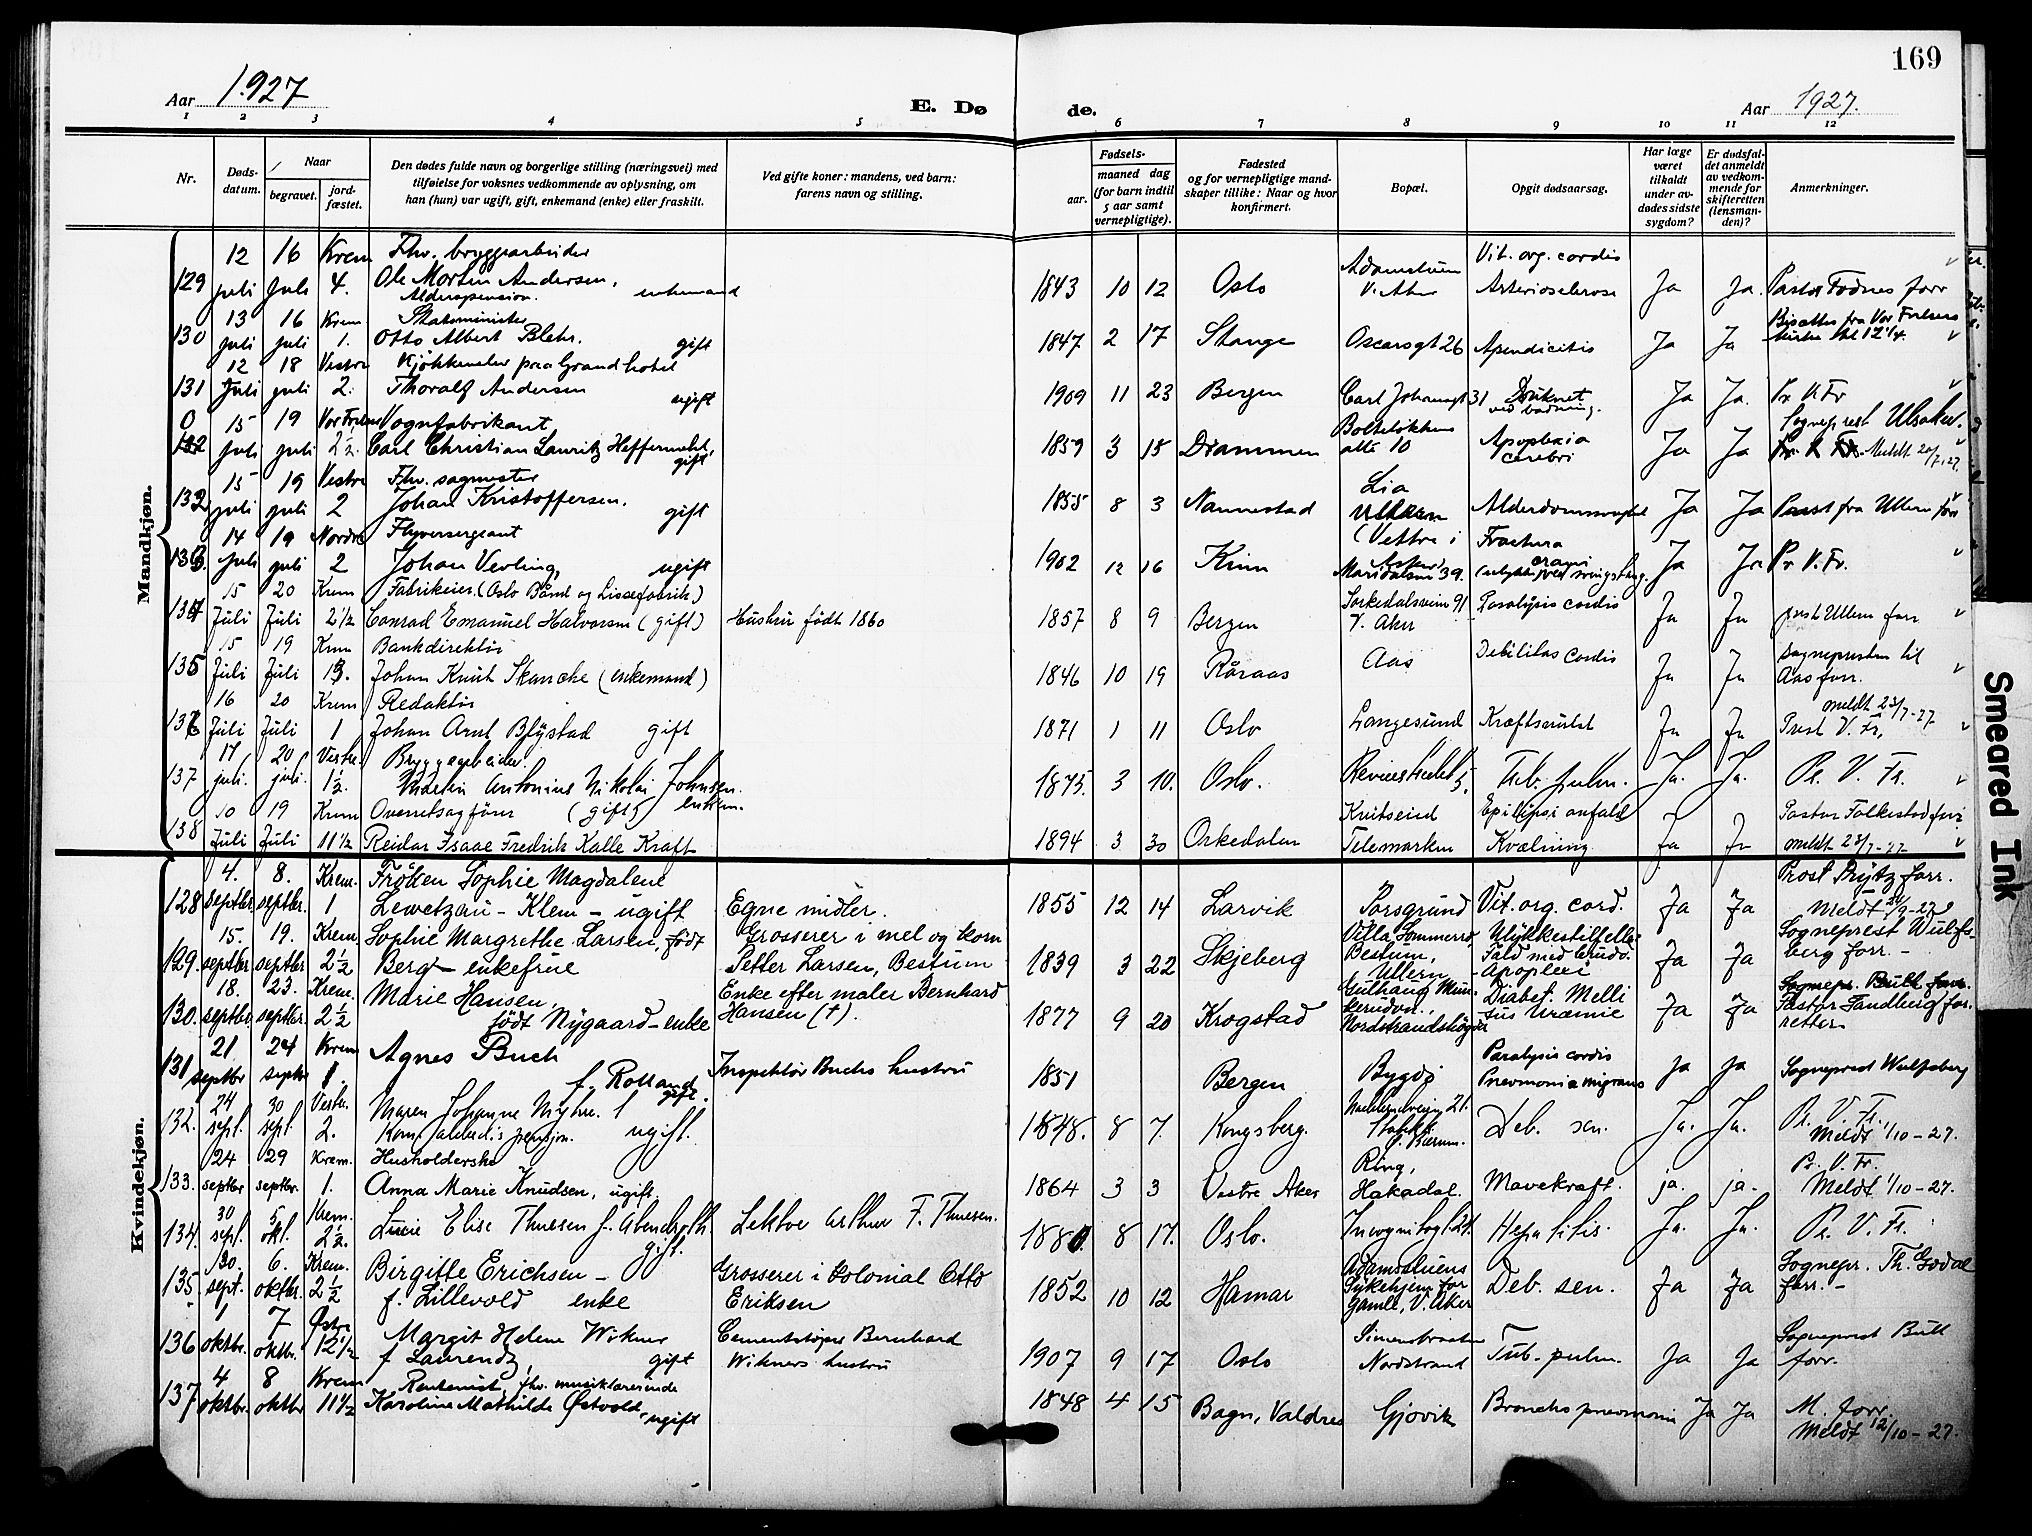 169
Aar 1927
E. Dø de.
Aar 1927.
1 2 3 4 5 6 7 8 9 10 11 12
Nr.
Døds-
datum.
Naar
begravet.
jord-
fæstet.
Den dødes fulde navn og borgerlige stilling (næringsvei) med
tilføielse for voksnes vedkommende av oplysning, om
han (hun) var ugift, gift, enkemand (enke) eller fraskilt.
Ved gifte koner: mandens, ved barn:
farens navn og stilling.
Fødsels-
aar.
maaned dag
(for barn indtil
5 aar samt
vernepligtige).
Fødested
og for vernepligtige mand-
skaper tillike: Naar og hvor
konfirmert.
Bopæl.
Opgit dødsaarsag.
Har læge
været
tilkaldt
under av-
dødes sidste
sygdom?
Er dødsfal-
det anmeldt
av vedkom-
mende for
skifteretten
(lensman-
den)?
Anmerkninger.
Mandkjøn.
12 16 Krem Fhv. bryggearbeider Adamstuen Vit. org. cordis
129 juli juli 4. Ole Morten Andersen, enkemand 1843 10 12 Oslo V. Aker Arteriosclerose Ja Ja. Pastor Fodnes forr
Alderspension.
13 16 Krem Statsminister Bisattes fra Vor Frelsers
130 juli juli 1. Otto Albert Blehr. gift 1847 2 17 Stange Oscarsgt 26 Apendicitis Ja Ja kirke kl 12 1/4.
12 18 Vestre Kjøkkenelev paa Grand hotel
131 Juli juli 2. Thoralf Andersen ugift 1909 11 23 Bergen Carl Johansgt 31 Druknet ved badning. Ja Ja. Pr. V. Fr
0 15 19 Vor Frelsers Vognfabrikant Bolteløkkens Apoplexia Sogneprest Ulsaker.
132 juli juli 2½ Carl Christian Lauritz Heffermehl, gift 1859 3 15 Drammen alle 10 cerebri Ja Ja Meldt 20/7.27.
15 19 Vestre Fhv. sagmester Lia
132 juli juli 2 Johan Kristoffersen. gift 1855 8 3 Nannestad Ullern Alderdomssvaghet Ja Ja Prest fra Ullern forr
14 19 Nordre Flyversergeant (Vettre i Asker) Fractura cranii
133. juli juli 2 Johan Verling, ugift 1902 12 16 Kinn Maridalsvn 39. Ja Ja Pr. V. Fr.
15 20 Krem Fabrikeier (Oslo Bånd og Lissefabrik) Sørkedalsveien 91 Paralysis cordis
134 Juli Juli 2½ Conrad Emanuel Halvorsen (gift) Hustru født 1860 1857 8 9 Bergen V. Aker Ja Ja prest Ullern forr.
15 19 Krem Bankdirektør Debilitas cordis Sognepresten til
135 Juli Juli 13. Johan Knut Skancke (enkemand) 1846 10 19 Røraas Aas Ja Ja Aas forr.
16 20 Krem Redaktør meldt 23/7-27
136 Juli Juli 1 Johan Arnt Blystad gift 1871 1 11 Oslo Langesund Kræftsvulst Ja Ja Prest V. Fr.
17 20 Vestre. Bryggearbeider.
137 juli. juli. 1½. Martin Antonius Nikolai Johnsen. enkem. 1875. 3 10. Oslo. Tub. pulm. Ja. Ja. Pr. V. Fr.
10 19 Krem Overretssagfører (gift) Knutseid Epilepsi anfald Pastor Falkestad forr
138 Juli Juli 11½ Reidar Isaac Fredrik Kalle Kraft 1894 3 30 Orkedalen Telemarken Kvælning Ja Ja meldt 23/7-27
Kvindekjøn.
4. 8. Krem. Frøken Sophie Magdalene Prost Prytz forr.
128 septbr. septbr. 1 Lewetzau-Klem - ugift Egne midler. 1855 12 14 Larvik Porsgrund Vit. org. cord. Ja Ja Meldt /9-27
15. 19. Krem. Sophie Margrethe Larsen, født Grosserer i mel og korn Villa Sommerro, Ulykkestilfelle Sogneprest Wulfs-
129. septbr septbr. 2½ Berg - enkefrue Petter Larsen, Bestum 1839 3 22 Skjeberg Bestum, Ullern Apoplexi Ja Ja berg forr. -
18. 23. Krem. Marie Hansen, Enke efter maler Bernhard Diabet. Melli- Sognepr. Bull forr.
130. septbr septbr. 2½ født Nygaard - enke Hansen (†). 1877 9 20 Krogstad Nordstrandshøgda tus Uræmie Ja Ja Pastor Sandberg for-
retter.
21 24 Krem Agnes Buch Paralysis cordis
131 septbr septbr 1 f. Rolland gift. Inspektør Buchs hustru 1851 Bergen Bygdø Pneumonia migrans Ja Ja Sogneprest Wulfsberg
24 30 Vestr. Maren Johanne Myhre.
132. sept. sept. 2. Kom. alderdis pensjon. ugift. 1848. 8 7. Kongsberg. Stabekk Bærum. Deb. sen. Ja. Ja. Pr. V. Fr.
Meldt 1/10-27.
24 29 Krem. Husholderske Ring, Pr. V. Fr.
133. septbr septbr. 1. Anna Marie Knudsen, ugift. 1864 3 3 Vestre Aker Hakadal. Mavekræft. ja. ja. Meldt 1/10-27.
30 5 Krem.
134. sept. okt. 2½. Lucie Elise Thuesen f. Abendroth. gift. Lektor Arthur F. Thuesen. 1880. 8 17. Oslo. Incognitogt 21. Hepatitis. Ja. Ja. Pr. V. Fr.
30. 6. Krem. Birgitte Erichsen - Grosserer i Colonial Otto Adamstuens Sognepr. Th. Godal
135. sept. oktbr. 2½ f. Lillevold enke Eriksen 1852 10 12 Hamar Sykehjem for Gamle, V. Aker Deb. sen. Ja Ja forr. -
1 7 Østre Margit Helene Wikner Cementstøper Bernhard Simensbraaten Sogneprest Bull
136 oktbr. oktbr. 12½ f Laurendz, gift Wikners hustru 1907 9 17 Oslo Nordstrand Tub. pulm. Ja Ja forr.
4 8 Krem Rentenist, fhv. musiklærerinde
137 oktbr. oktbr 11½ Karoline Mathilde Østvold, ugift 1848 4 15 Bagn, Valdres Gjøvik Bronchopneumoni Ja Ja M. forr.
Meldt 12/10-27.
Smeared Ink